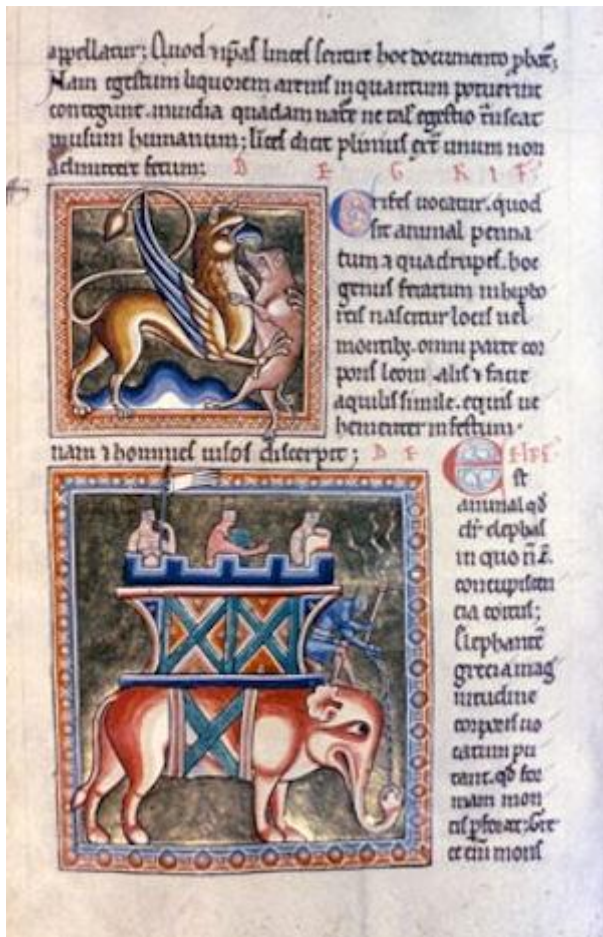 appellatur; Quod ipsas lincei sentiut hoc documento phat;
Nam egestum liquorem arenis inquantum potuerint
contegunt. inuidia quadam nate ne tas egestio
inusum humanum; licet dicit plinius unum non
admittere fetum;
D E G R I F
Grifes uocatur. quod
sit animal penna
tum ⁊ quadrupes. hoc
genus feratum inhipbo
reis nascitur locis uel
montibꝫ. omni parte cor
poris leoni alis ⁊ facie
aquilis simile. equis ue
hementer infestum.
nam ⁊ homines uisos discerpit;
D E
Est
animal qd
dr̄ elephas
in quo
concupiscen
cia coitus;
Elephante
grecia mag
nitudine
corporis uo
catum pu
tant. qd for
mam mon
tis pferat. Gre
ce eni mons